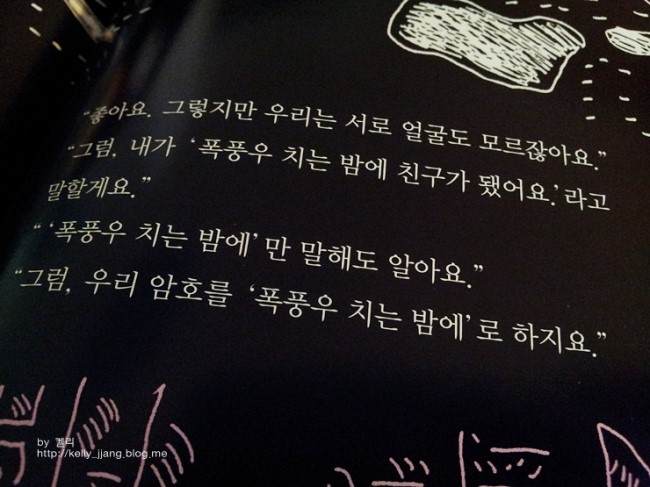 “좋아요. 그렇지만 우리는 서로 얼굴도 모르잖아요.”
“그럼, 내가 ‘폭풍우 치는 밤에 친구가 됐어요.’라고
말할게요.”
“‘폭풍우 치는 밤에’만 말해도 알아요.”
“그럼, 우리 암호를 ‘폭풍우 치는 밤에’로 하지요.”
by 켈리
http://kelly_jjang.blog.me